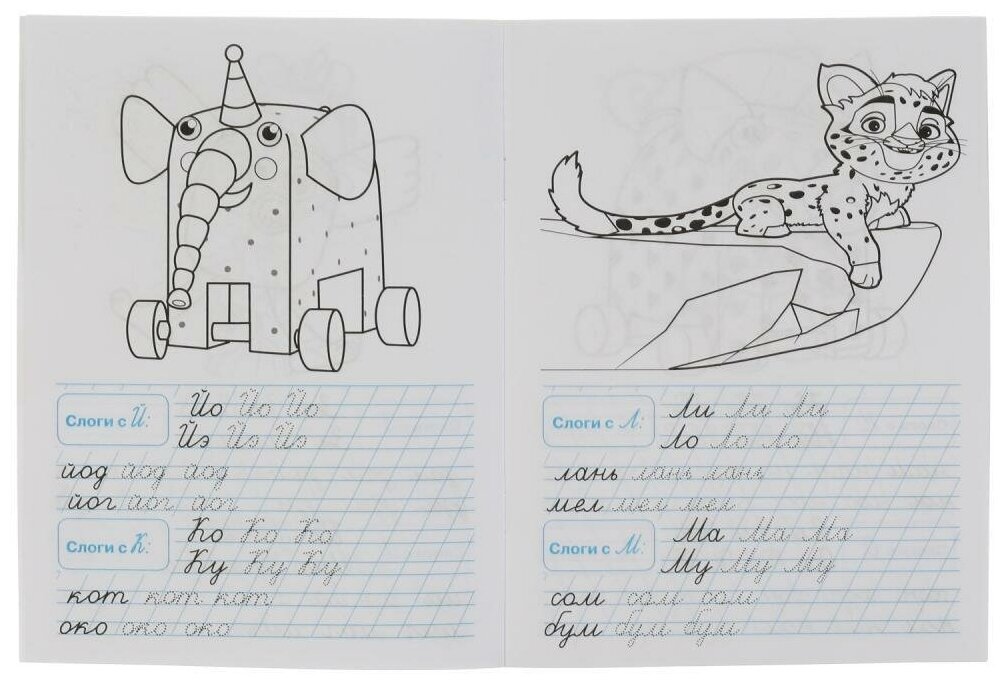 Слоги с Й: Йо Йо Йо
Йэ Йэ Йэ
йод йод йод
йог йог йог
Слоги с К: Ко Ко Ко
Ку Ку Ку
кот кот кот
око око око
Слоги с Л: Ли Ли Ли
Ло Ло Ло
лань лань лань
мел мел мел
Слоги с М: Ма Ма Ма
Му Му Му
сом сом сом
бум бум бум